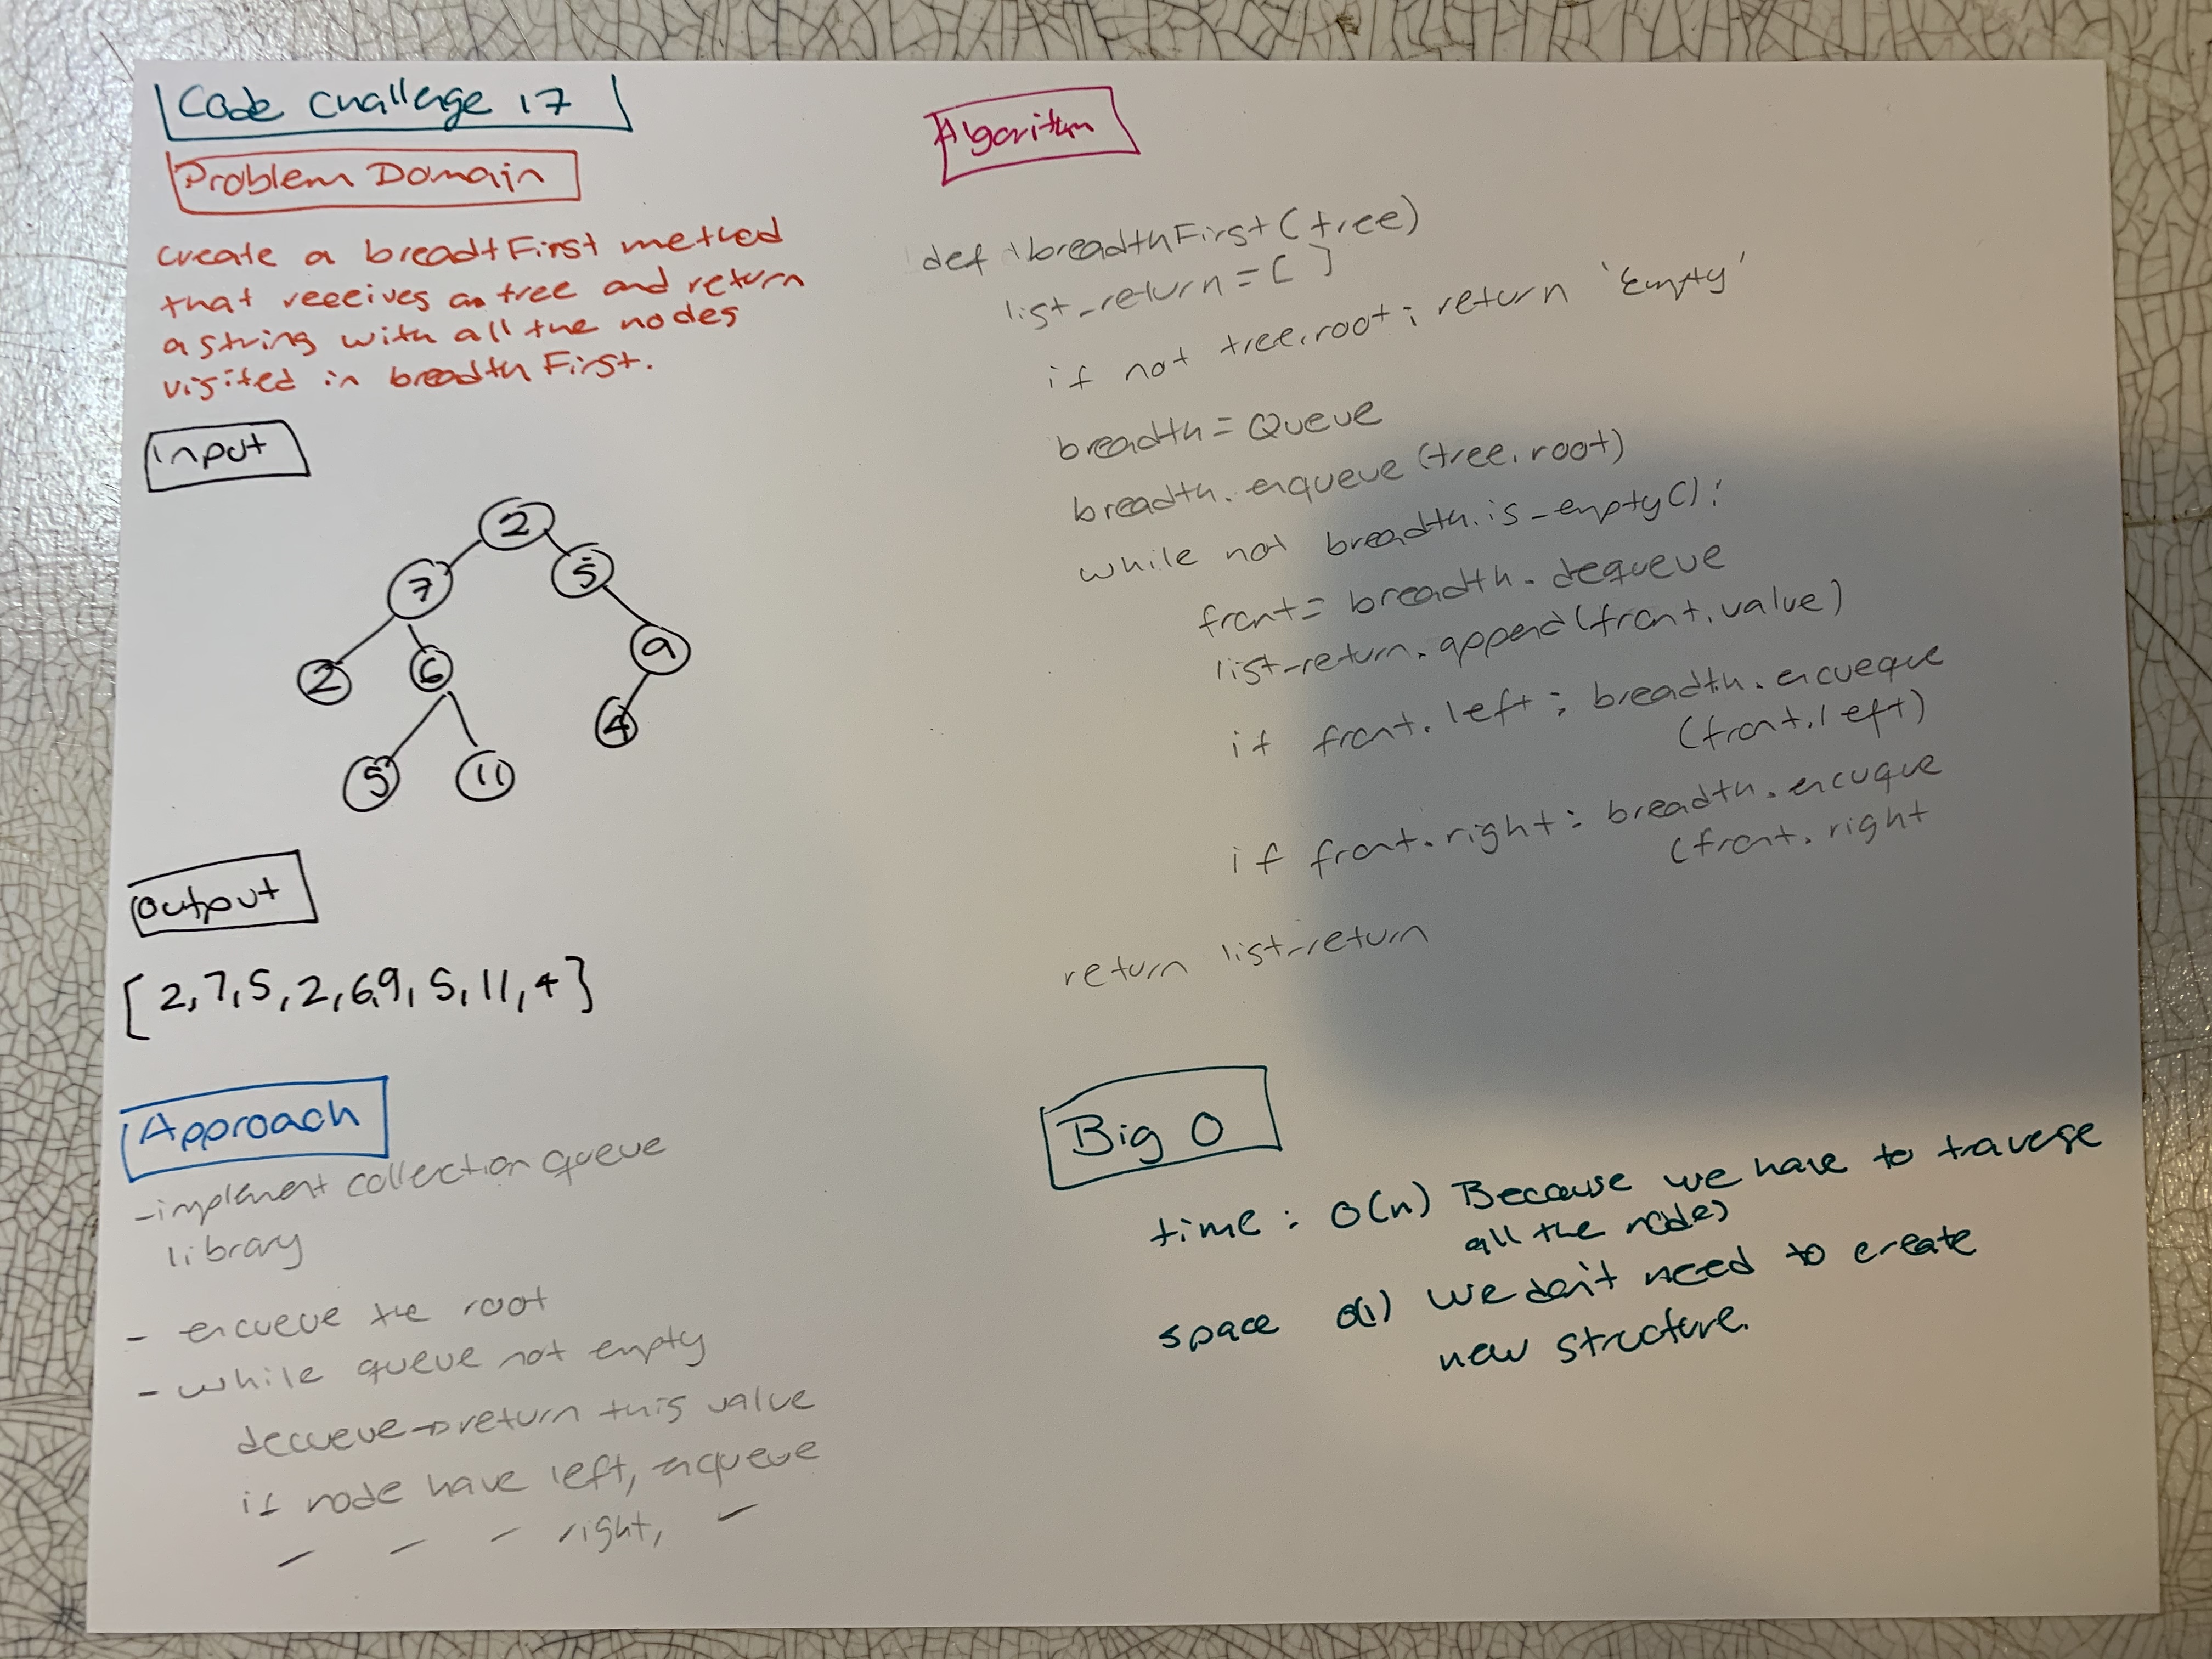 Code Challenge 17
Problem Domain
create a breadtFirst method
that receives a tree and return
a string with all the nodes
visited in breadth First.
Input
2
7
5
2
6
9
4
5
11
Output
[2,7,5,2,6,9,5,11,4]
Approach
- implement collection queue
library
- encueue the root
- while queue not empty
decueue→return this value
if node have left, enqueue
- - - right, -
Algorithm
def breadthFirst(tree)
list_return = [ ]
if not tree.root: return 'Empty'
breadth = Queue
breadth.enqueue(tree.root)
while not breadth.is_empty():
front = breadth.dequeue
list_return.append(front.value)
if front.left: breadth.encueque
(front.left)
if front.right: breadth.encuque
(front.right
return list_return
Big O
time: O(n) Because we have to traverse
all the nodes
space O(1) We don't need to create
new structure.